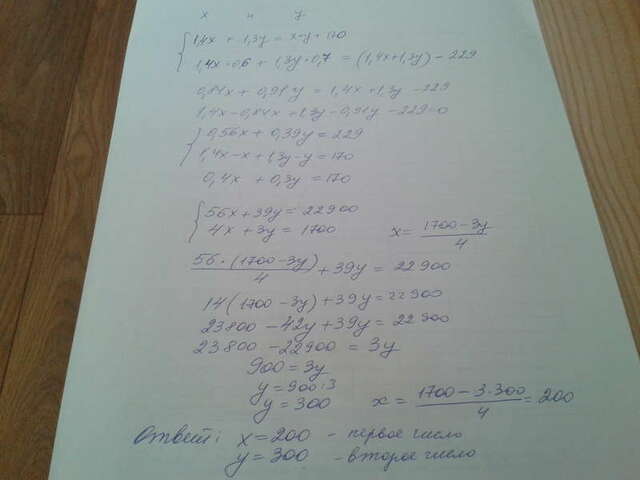 x и y
1,4x + 1,3y = x+y+170
1,4x·0,6 + 1,3y·0,7 = (1,4x+1,3y) - 229
0,84x + 0,91y = 1,4x+1,3y - 229
1,4x-0,84x + 1,3y-0,91y - 229=0
0,56x + 0,39y = 229
1,4x-x + 1,3y-y = 170
0,4x + 0,3y = 170
56x+39y = 22900
4x + 3y = 1700 x = 1700-3y/4
56·(1700-3y)/4 + 39y = 22900
14(1700-3y)+39y = 22900
23800 - 42y+39y = 22900
23800 - 22900 = 3y
900 = 3y
y = 900:3
y = 300 x = 1700-3·300/4 = 200
Ответ: x = 200 - первое число
y = 300 - второе число